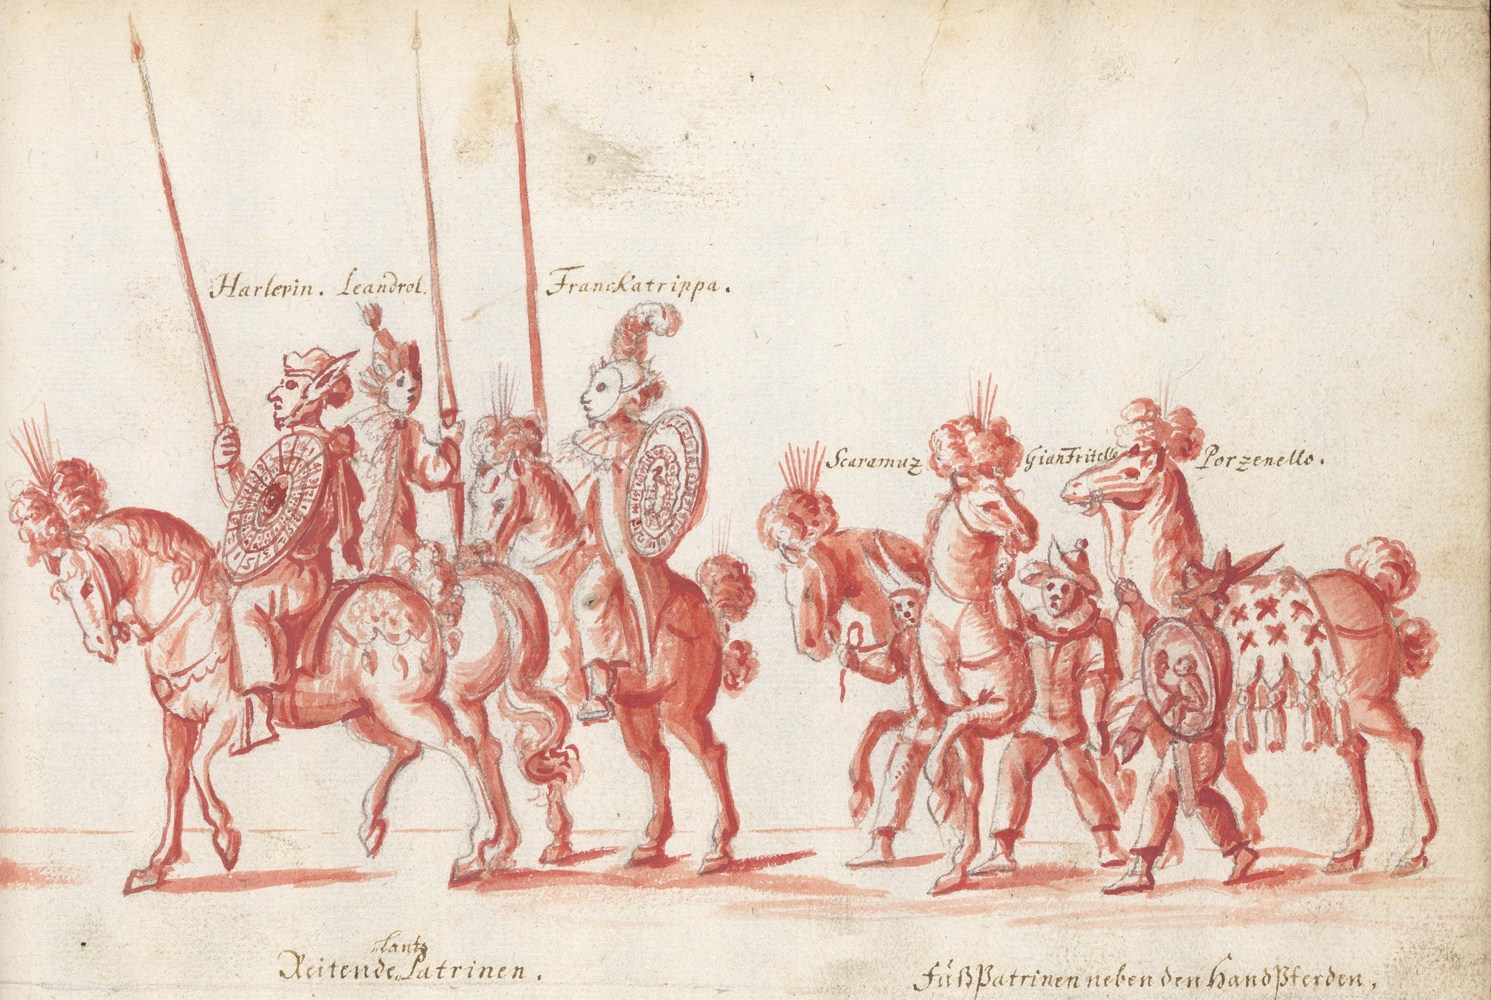 Harlevin. Leandrol.
Franckatrippa.
Scaramuz
Gian Fritello
Porzenello.
Lantz
Reitende Patrinen.
Füß Patrinen neben den Hand Pferden.